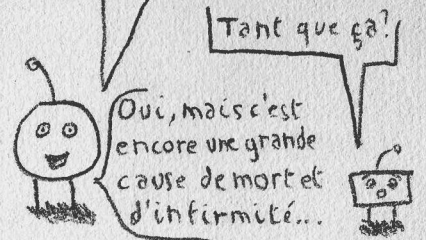 Tant que ça?
Oui, mais c'est
encore une grande
cause de mort et
d'infirmité...